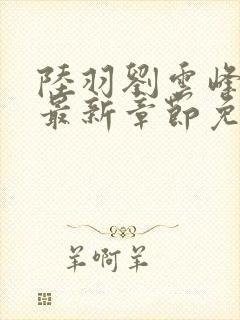 陸羽劉雲峰
最新章節免
羊啊羊